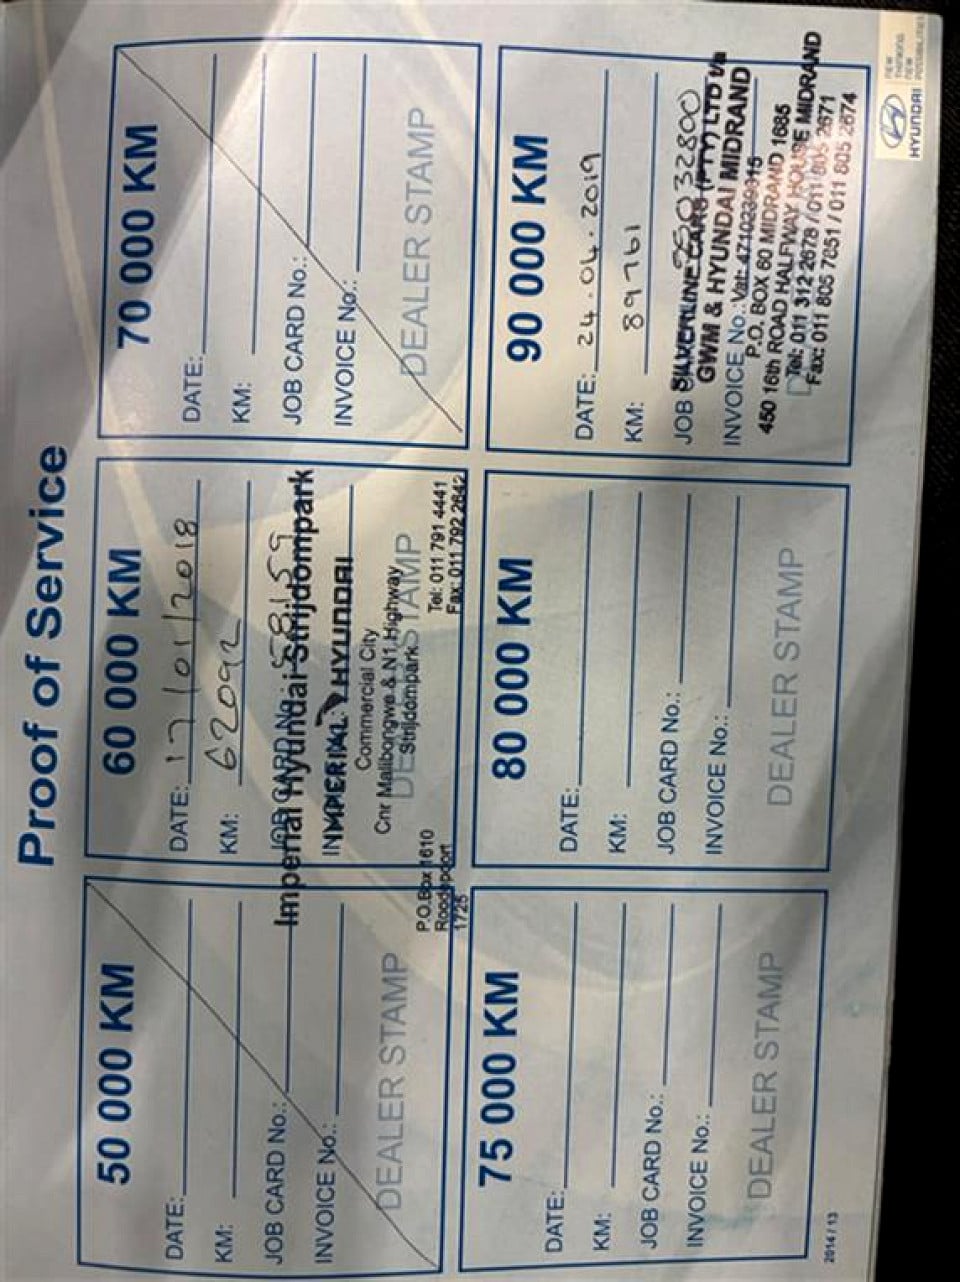 Proof of Service
50 000 KM
DATE:
KM:
JOB CARD No.:
INVOICE No.:
DEALER STAMP
60 000 KM
DATE: 17/01/2018
KM: 62092
JOB CARD No.: 58159
Imperial Hyundai Strijdompark
IMPERIAL HYUNDAI
Commercial City
Cnr Malibongwe & N1 Highway
Strijdompark
DEALER STAMP
P.O.Box 1610 Tel: 011 791 4441
Roodepoort Fax: 011 792 2642
1725
70 000 KM
DATE:
KM:
JOB CARD No.:
INVOICE No.:
DEALER STAMP
75 000 KM
DATE:
KM:
JOB CARD No.:
INVOICE No.:
DEALER STAMP
80 000 KM
DATE:
KM:
JOB CARD No.:
INVOICE No.:
DEALER STAMP
90 000 KM
DATE: 24.04.2019
KM: 89761
JOB
SILVERLINE CARS (PTY) LTD t/a
GWM & HYUNDAI MIDRAND
INVOICE No.: Vat:
P.O. BOX 60 MIDRAND 1685
450 16th ROAD HALFWAY HOUSE MIDRAND
Tel: 011 312 2678 / 011 805 2671
Fax: 011 805 7851 / 011 805 2674
2014 / 13
HYUNDAI
NEW
THINKING.
NEW
POSSIBILITIES.